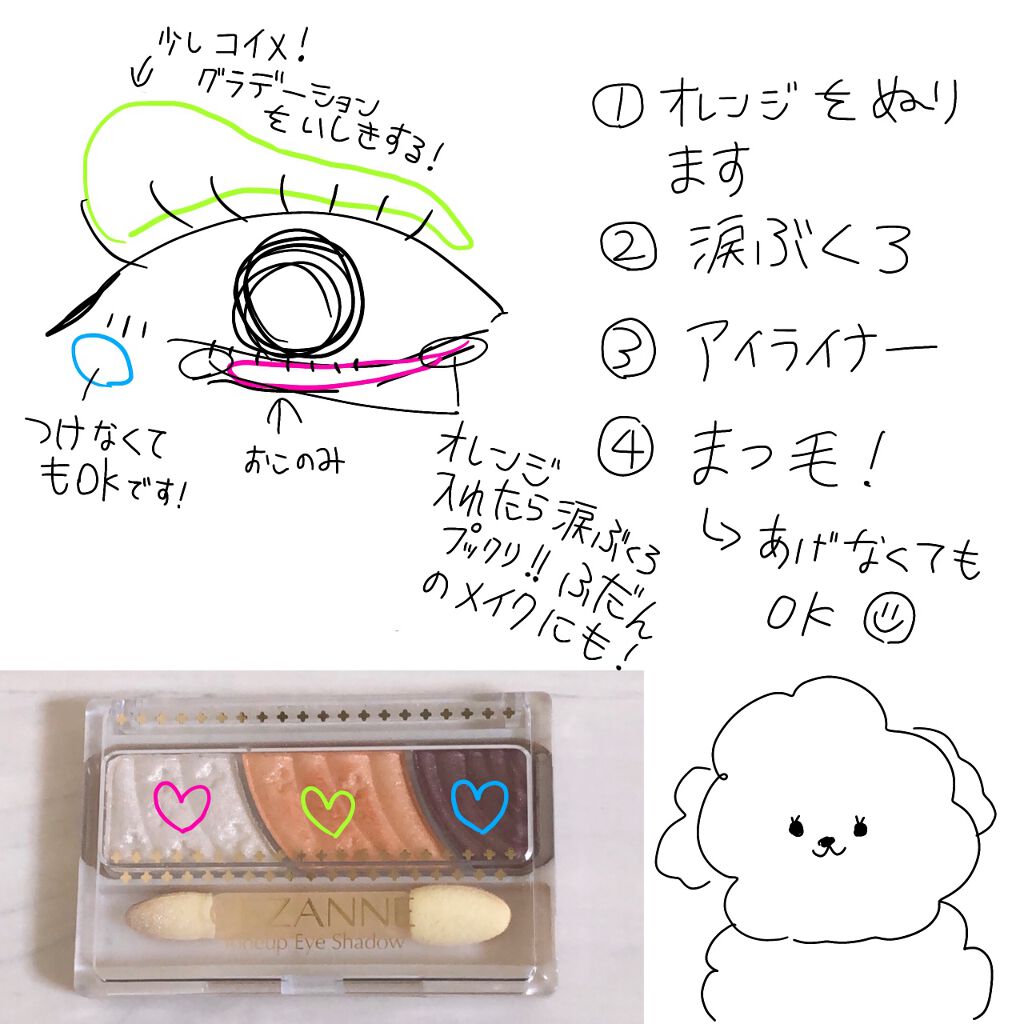 少しコイメ!
グラデーション
をいしきする!
つけなくて
もOKです!
おこのみ
オレンジ
入れたら涙ぶくろ
プックリ!!ふだん
のメイクにも!
① オレンジをぬり
ます
② 涙ぶくろ
③ アイライナー
④ まつ毛!
あげなくても
OK
CEZANNE
Toneup Eye Shadow